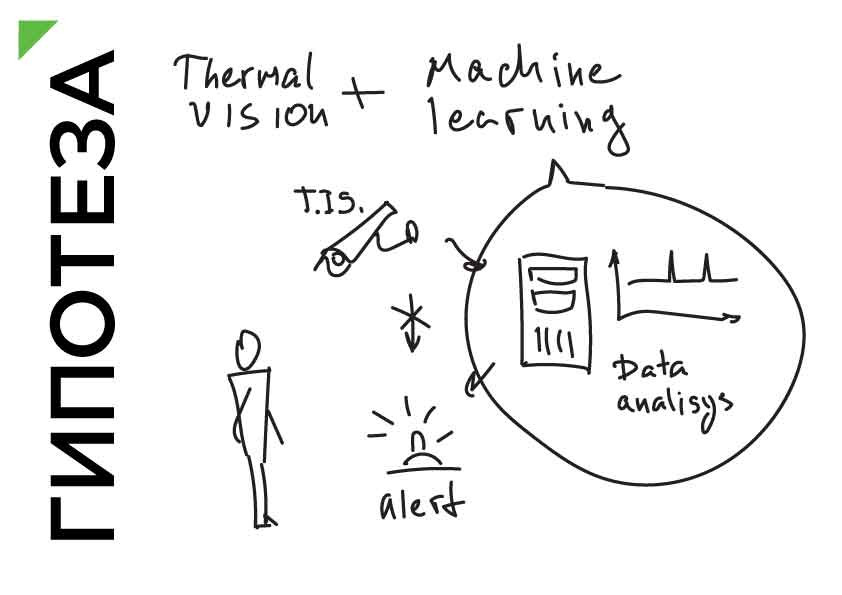 ГИПОТЕЗА
Thermal
VISION
+
Machine
learning
T.IS.
Data
analisys
alert